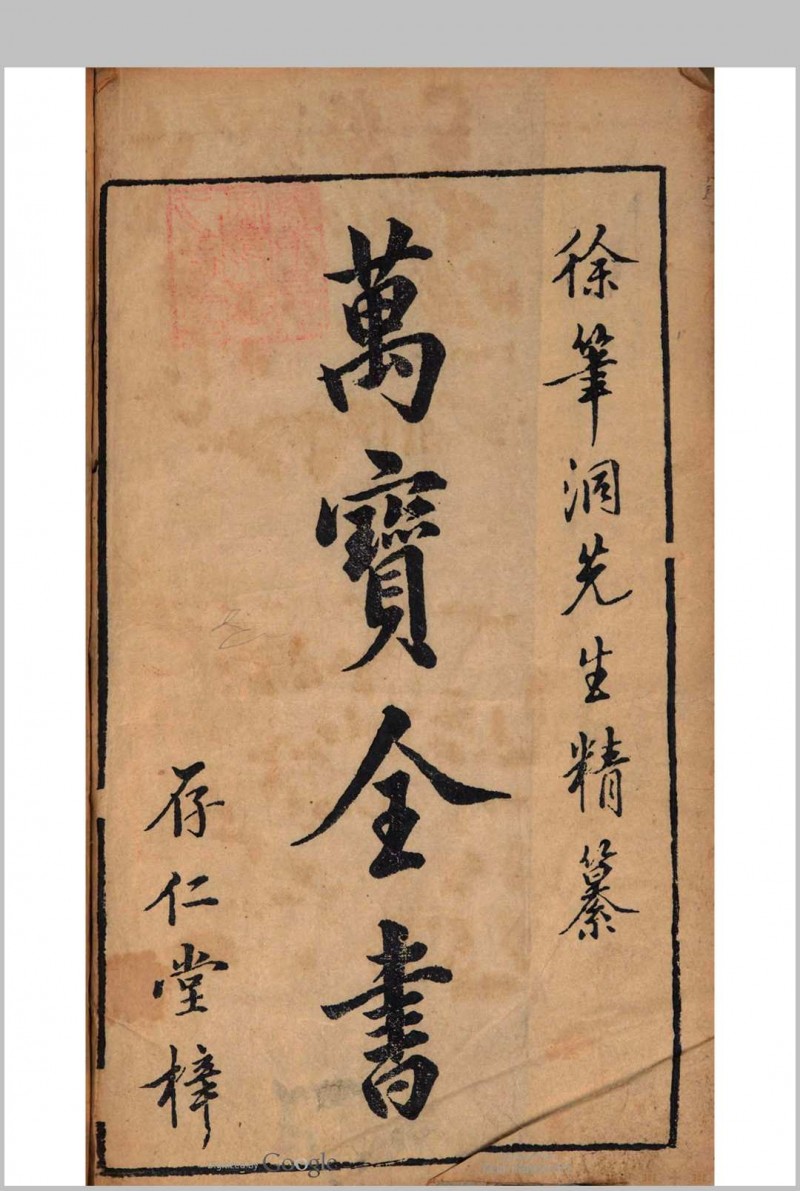 徐筆洞先生精纂
萬寶全書
存仁堂梓
Google